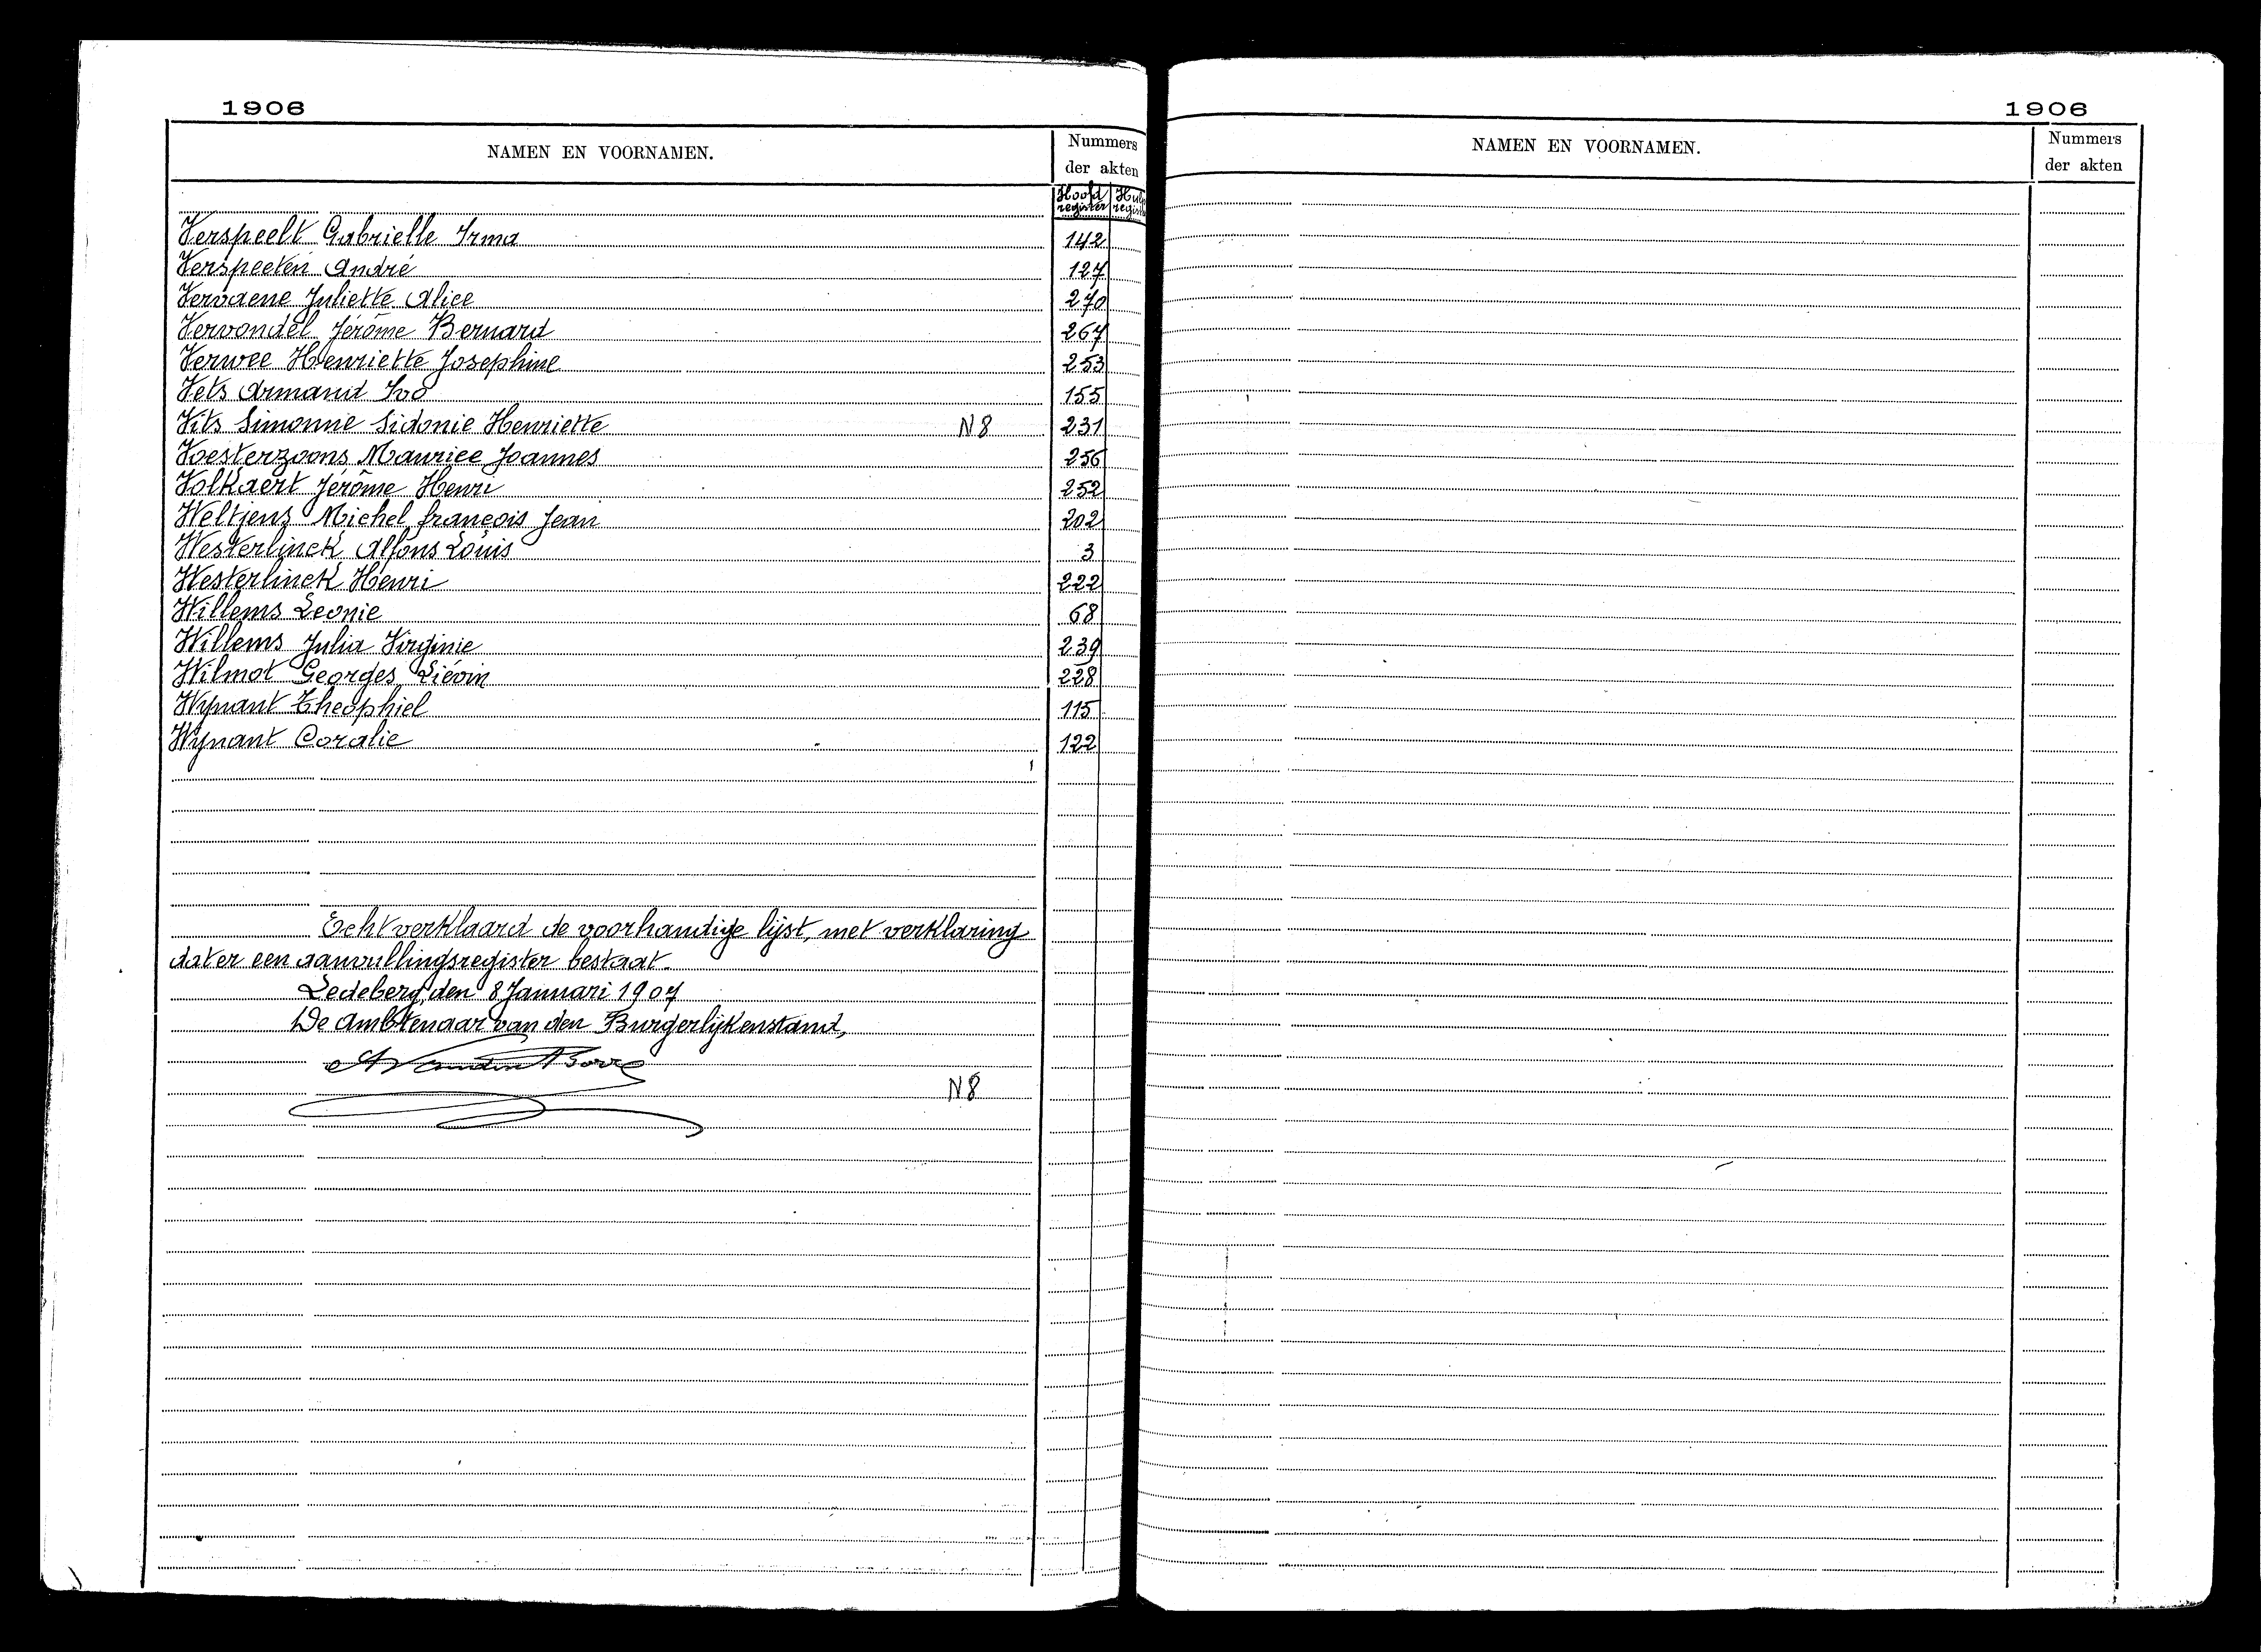 1906
NAMEN EN VOORNAMEN.
Nummers
der akten
Hoofd
register
Verspeelt Gabrielle Irma 142
Verspeeten André 127
Vervaene Juliette Alice 270
Vervondel Jérôme Bernard 267
Verwee Henriette Josephine 253
Vets Armand Ivo 155
Vits Simonne Sidonie Henriette N8 231
Voesterzoons Maurice Joannes 256
Volkaert Jérôme Henri 252
Weltjens Michel françois Jean 202
Westerlinck Alfons Louis 3
Westerlinck Henri 222
Willems Leonie 68
Willems Julia Virginie 239
Wilmot Georges Liévin 228
Wynant Theophiel 115
Wynant Coralie 122
Echt verklaard de voorhandige lijst, met verklaring
dat er een aanvullingsregister bestaat.
Ledeberg, den 8 Januari 1907
De Ambtenaar van den Burgerlijkenstand,
N8
1906
NAMEN EN VOORNAMEN.
Nummers
der akten